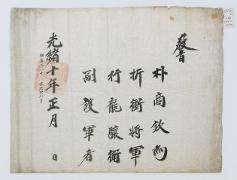 敎旨
朴商欽爲
折衝將軍
行龍驤衛
副護軍者
光緖十年正月 日